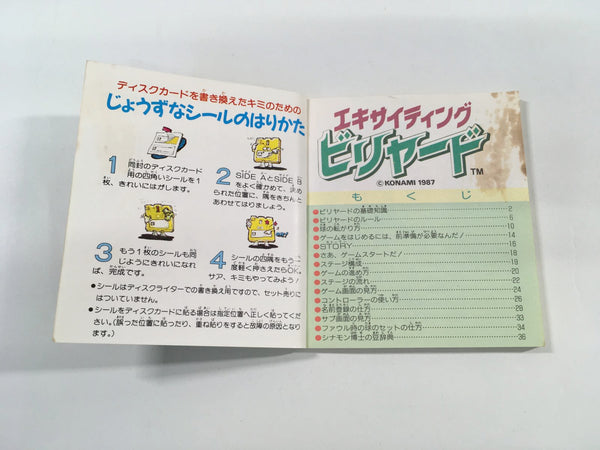 ディスクカードを書き換えたキミのための
じょうずなシールのはりかた
1 同封のディスクカード
用の四角いシールを1
枚、きれいにはがします。
2 SIDE AとSIDE B
をよく確かめて、決め
られた位置に、隅をきちんと
あわせてはりましょう。
3 もう1枚のシールも同
じようにきれいになれ
ば、完成です。
4 シールの四隅をもう一
度軽く押さえたらOK。
サア、キミもやってみよう!
●シールはディスクライターでの書き換え用ですので、セット売りに
はついていません。
●シールをディスクカードに貼る場合は指定位置へ正しく貼ってくだ
さい。(誤った位置に貼ったり、重ね貼りをすると故障の原因となり
ます。)
エキサイティング
ビリヤード TM
© KONAMI 1987
もくじ
●ビリヤードの基礎知識 2
●ビリヤードのルール 6
●球の転がり方 10
●ゲームをはじめるには、前準備が必要なんだ! 14
●STORY 16
●さあ、ゲームスタートだ! 18
●ステージ構成 19
●ゲームの進め方 20
●ステージの流れ 22
●ゲーム画面の見方 24
●コントローラーの使い方 26
●名前登録の仕方 28
●サブ画面の見方 33
●ファウル時の球のセットの仕方 34
●シナモン博士の豆辞典 36